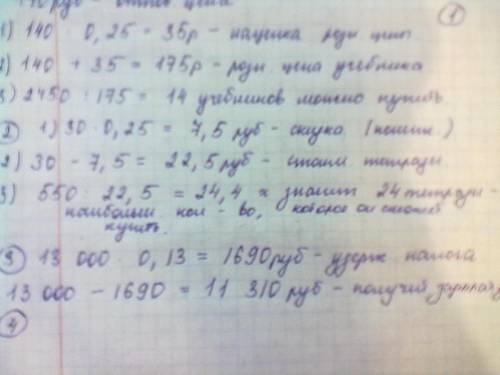 140 руб - оптов цена
①
1) 140 · 0,25 = 35р - наценка розн цены
2) 140 + 35 = 175р - розн. цена учебника
3) 2450 : 175 = 14 учебников можно купить
② 1) 30 · 0,25 = 7,5 руб - скидка
2) 30 - 7,5 = 22,5 руб - стоим. тетради
3) 550 : 22,5 = 24,4 значит 24 тетради -
наибольш кол - во, которое он сможет
купить.
③ 13 000 · 0,13 = 1690 руб - удерж. налога
13 000 - 1690 = 11 310 руб - получит
④